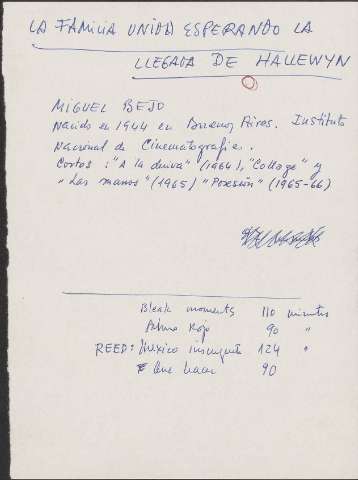 LA FAMILIA UNIDA ESPERANDO LA
LLEGADA DE HALLEWYN
MIGUEL BEJO
Nacido en 1944 en Buenos Aires. Instituto
Nacional de Cinematografia.
Cortos: "A la deriva" (1964), "Collage" y
"Las manos" (1965) "Posesión" (1965-66)
Bleak moments 110 minutos
Palomo Rojo 90 "
REED: Mexico insurgente 124 "
90